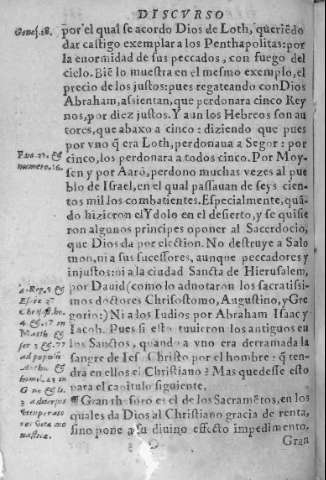 DISCVRSO
Genes. 18.
por el qual se acordo Dios de Loth, queriẽdo
dar castigo exemplar a los Penthapolitas: por
la enormidad de sus peccados, con fuego del
cielo. Biẽ lo muestra en el mesmo exemplo, el
precio de los justos: pues regateando con Dios
Abraham, assientan, que perdonara cinco Rey
nos, por diez justos. Y aun los Hebreos son au
tores, que abaxo a cinco: diziendo que pues
por vno q̃ era Loth, perdonaua a Segor: por
cinco, los perdonara a todos cinco. Por Moy-
sen y por Aarõ, perdono muchas vezes al pue
blo de Israel, en el qual passauan de seys cien
tos mil los combatientes. Especialmente, quã-
do hizieron el Ydolo en el desierto, y se quisie
ron algunos principes oponer al Sacerdocio,
que Dios da por election. No destruye a Salo
mon, ni a sus sucessores, aunque peccadores y
injustos: ni a la ciudad Sancta de Hierusalem,
por Dauid (como lo adnotaron los sacratissi-
mos doctores Chrisostomo, Augustino, y Gre
gorio:) Ni a los Iudios por Abraham Isaac y
Iacob. Pues si esto tuuieron los antiguos en
los Sanctos, quando a vno era derramada la
sangre de Iesu Christo por el hombre: q̃ ten-
dra en ellos el Christiano? Mas quedesse esto
para el capitulo siguiente.
¶ Gran thesoro es el de los Sacramẽtos, en los
quales da Dios al Christiano gracia de renta,
sino pone a su diuino effecto impedimento.
Gran